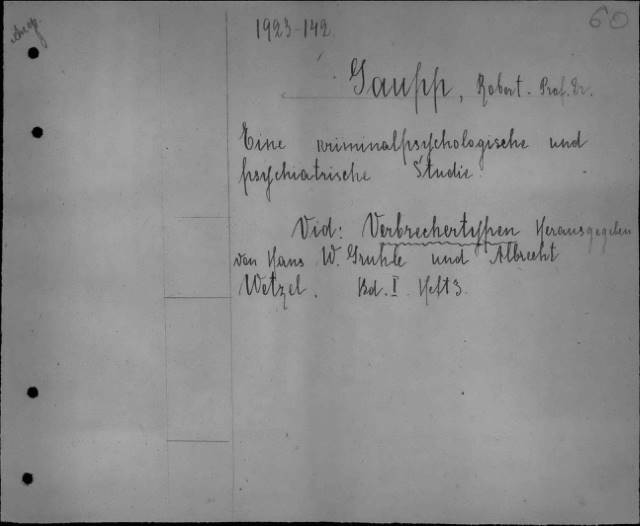 1923-142
60
Gaupp, Robert. Prof. Dr.
Eine kriminalpsychologische und
psychiatrische Studie.
Vid: Verbrechertypen Herausgegeben
von Hans W. Gruhle und Albrecht
Wetzel. Bd. I Heft 3.